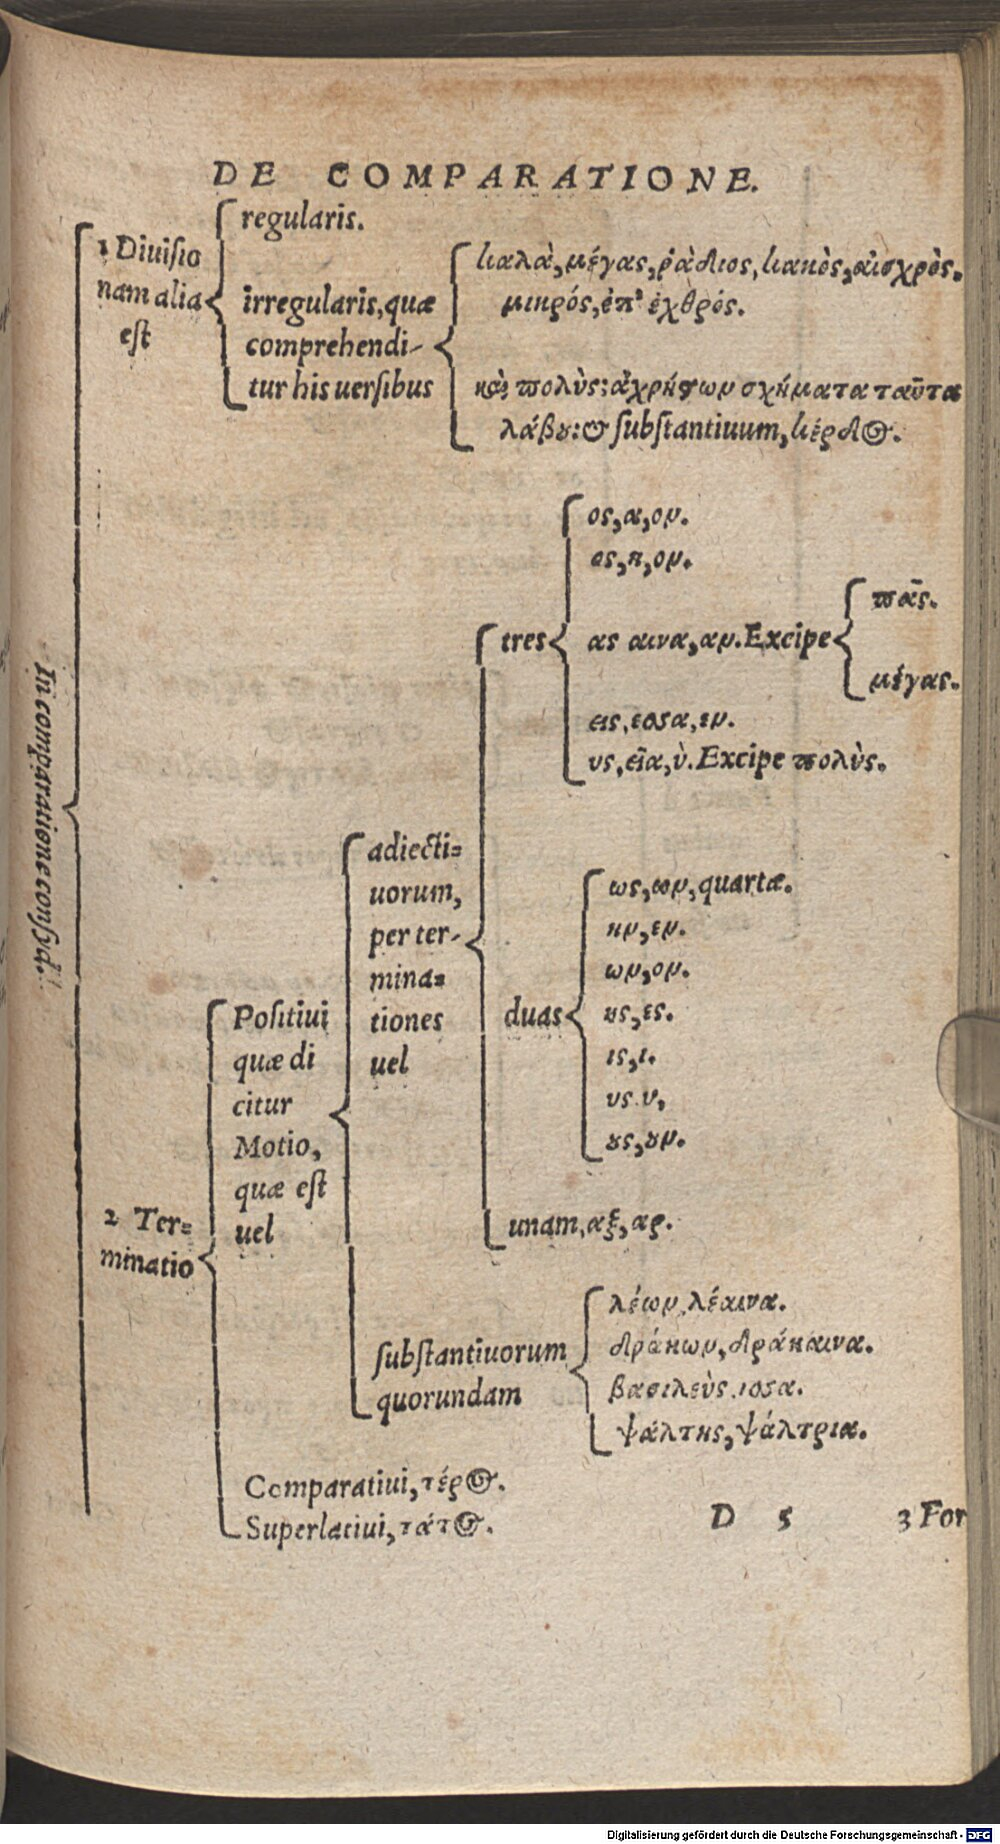 DE COMPARATIONE.
In comparatione consyd.
1 Diuisio
nam alia
est
regularis.
irregularis, quæ
comprehendi-
tur his uersibus
καλὰ, μέγας, ῥάδιος, κακὸς, αἰσχρὸς,
μικρός, ἐπ' ἐχθρός.
πολὺς: σχήματα ταῦτα
λάβȣ: & substantiuum, κέρδος.
2 Ter=
minatio
Positiui
quæ di
citur
Motio,
quæ est
uel
adiecti=
uorum,
per ter-
mina=
tiones
uel
tres
ος, α, ον.
ος, η, ον.
ας αινα, αν. Excipe
πᾶς.
μέγας.
εις, εσσα, εν.
υς, εῖα, ὺ. Excipe πολὺς.
duas
ως, ων, quartæ.
ην, εν.
ων, ον.
ης, ες.
ις, ι.
υς. υ,
ȣς, ȣν.
unam, αξ, αρ.
substantiuorum
quorundam
λέων, λέαινα.
δράκων, δράκαινα.
βασιλεὺς .ισσα.
ψάλτης, ψάλτρια.
Comparatiui, τέρος.
Superlatiui, τάτος.
D 5 3 For
Digitalisierung gefördert durch die Deutsche Forschungsgemeinschaft - DFG